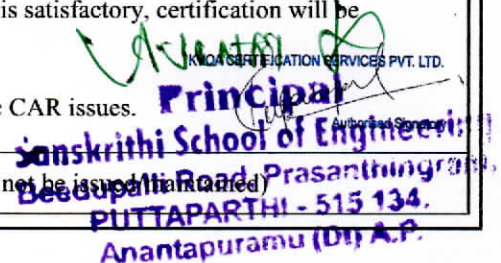 is satisfactory, certification will be
KVQA CERTIFICATION SERVICES PVT. LTD.
CAR issues.
Principal
Authorised Signatory
Sanskrithi School of Engineering
not be issued/maintained)
Beedupalli Road, Prasanthingram,
PUTTAPARTHI - 515 134.
Anantapuramu (Dt) A.P.